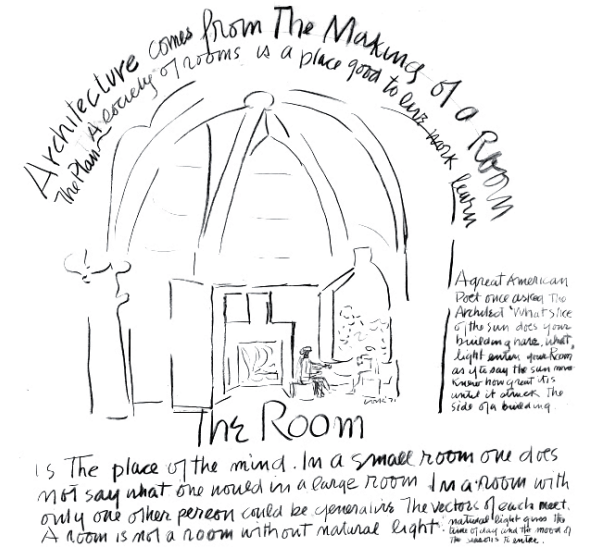 Architecture comes from The Making of a Room
The Plan A society of rooms is a place good to live work learn
A great American
Poet once asked The
Architect 'What slice
of the sun does your
building have, what
light enters your Room
as if to say the sun never
knew how great it is
until it struck the
side of a building.
The Room
is The place of the mind. In a small room one does
not say what one would in a large room In a room with
only one other person could be generative The vectors of each meet.
A room is not a room without natural light.
natural light gives the
time of day and the mood of
the seasons to enter.